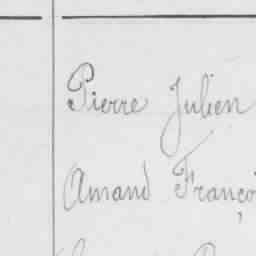 Pierre Julien
Amand Franço